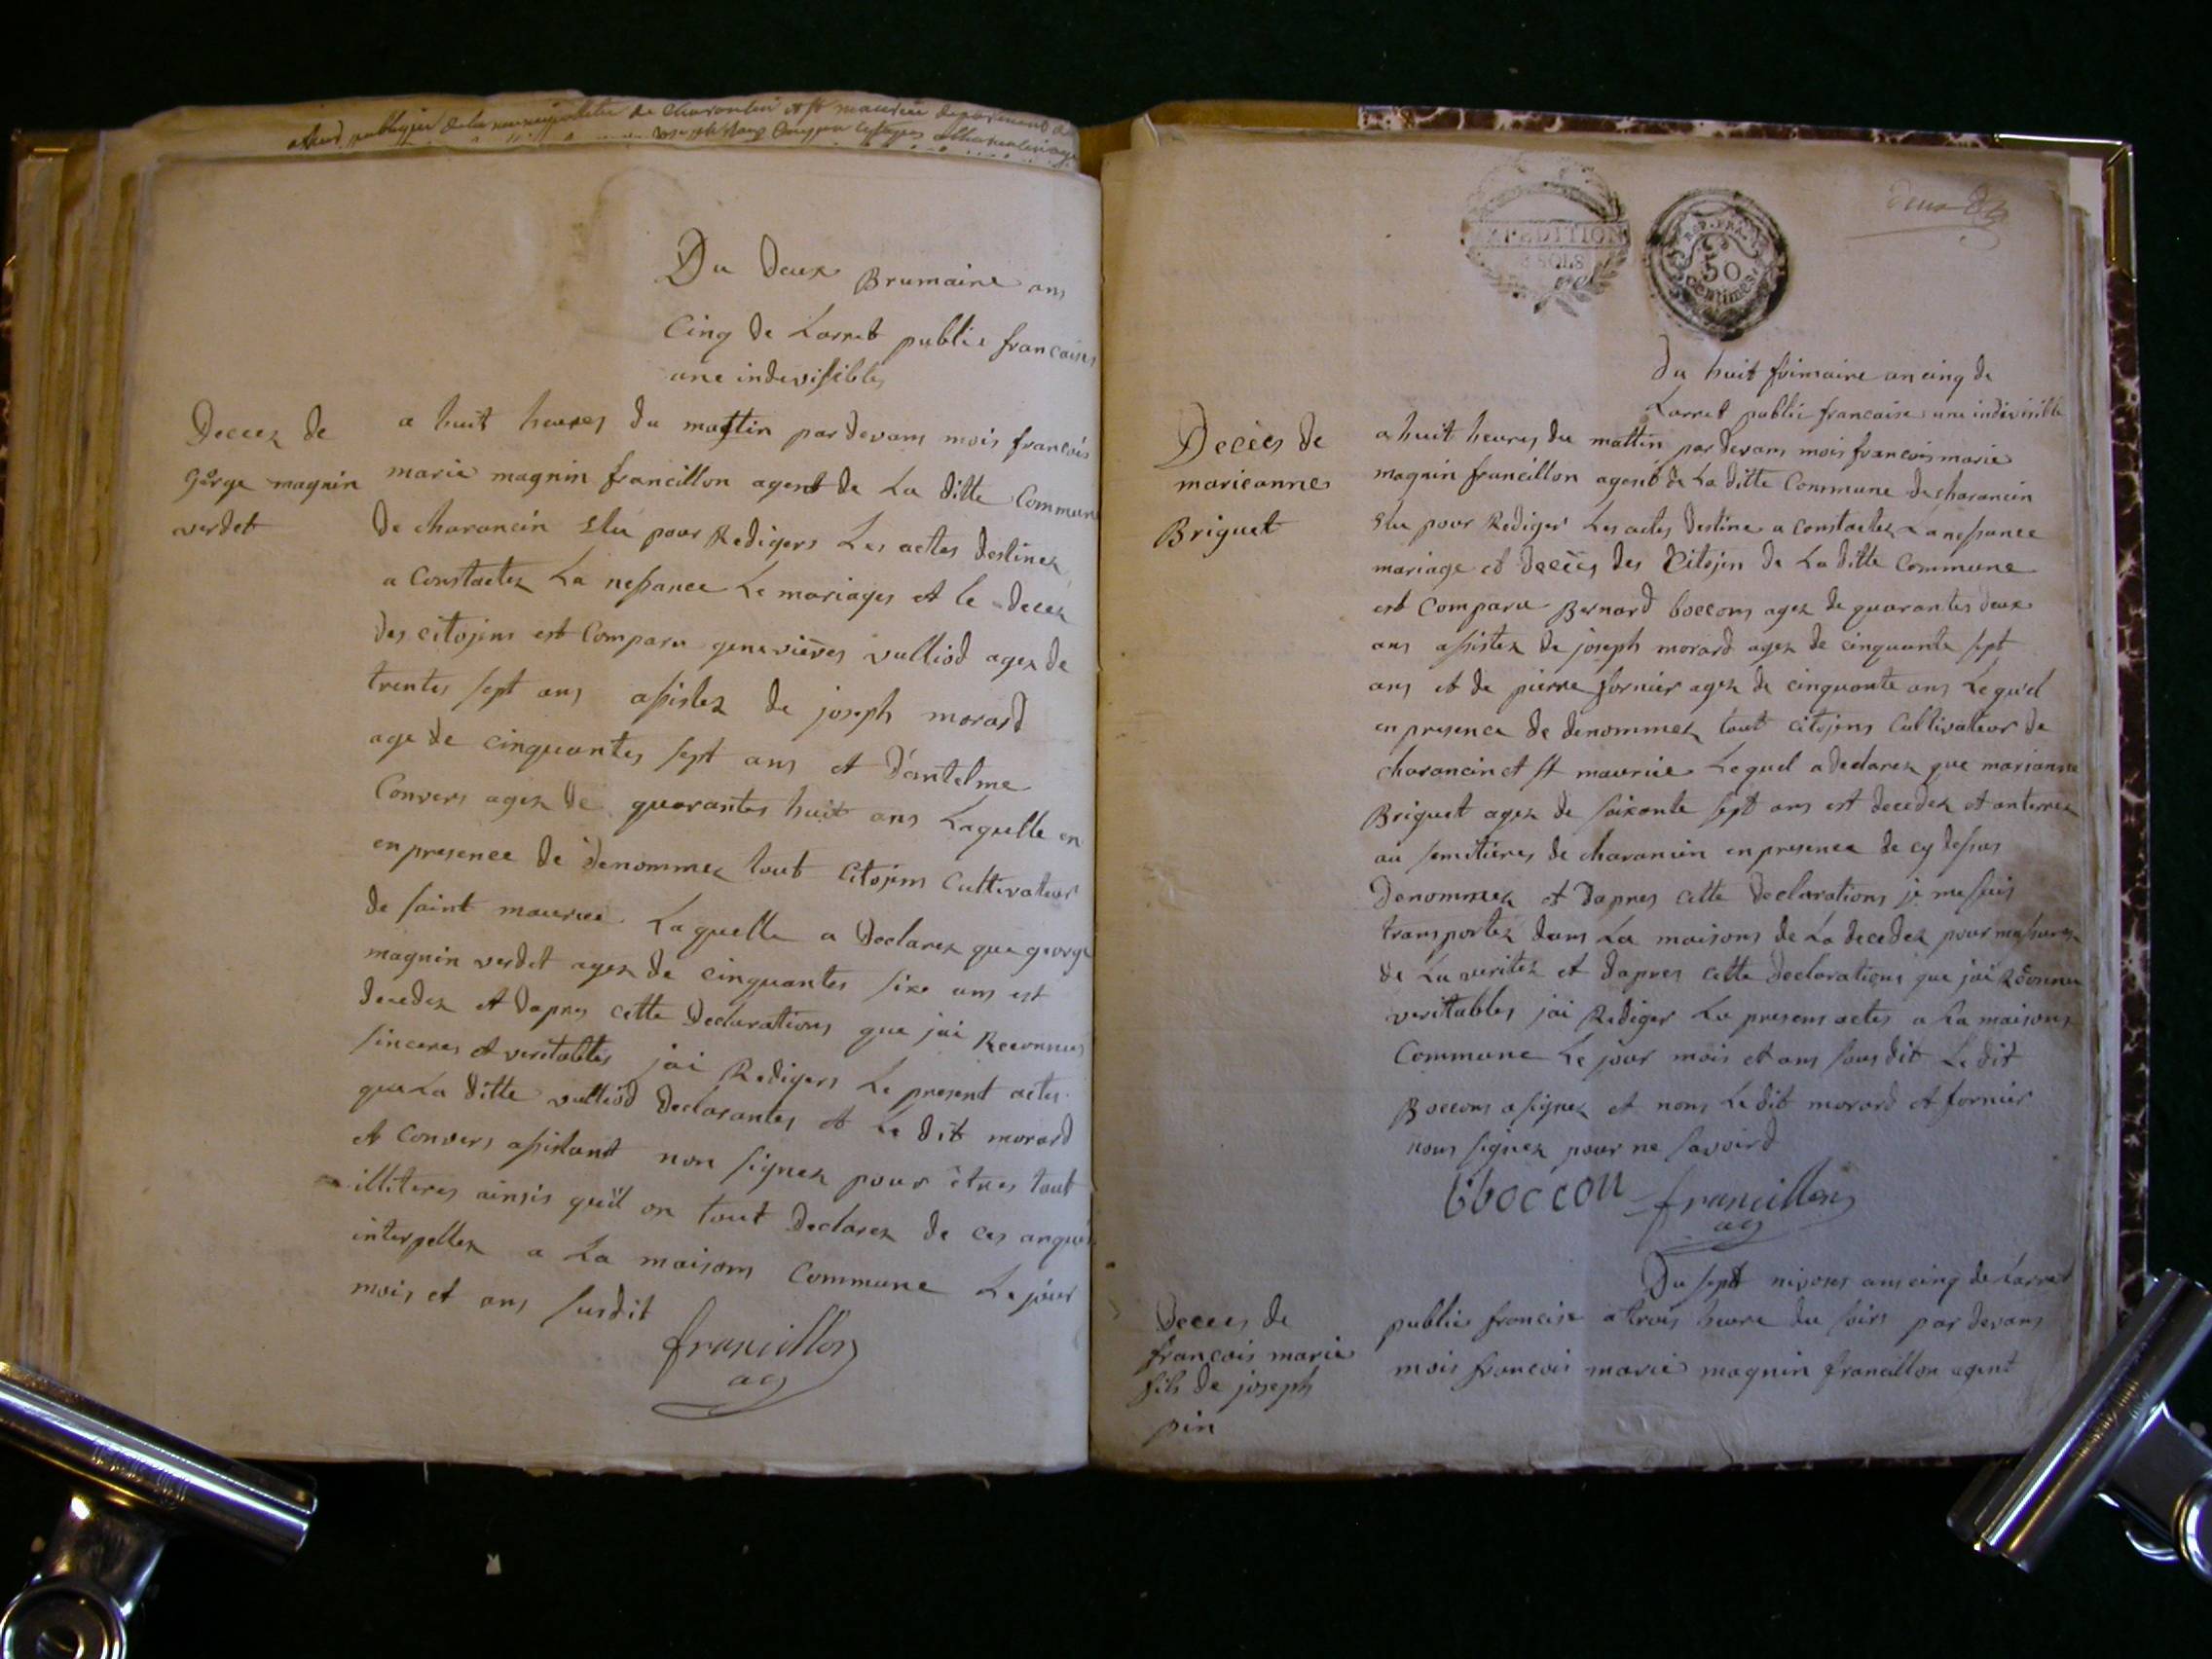 Du Deux Brumaire ans
Cinq de Larret public francaises
une indevisibles
Decez de
Gorge magnin
verdet
a huit heures du mattin par devans mois francois
marie magnin francillon agent de La ditte Commune
De charancin Elu pour Redigers Les actes destinez
a Constactez La nessance Le mariages et le decez
des citojens est Comparu genevieves vulliod agez de
trentes sept ans assistez de joseph morard
age de cinquantes sept ans et d'antelme
Convers agez de quarantes huit ans Laquelle en
en presence de denommez tout Citojens Cultivateur
de saint maurice Laquelle a Declarez que george
magnin verdet agez de cinquantes sixe ans est
decedez et dapres cette Declarations que jai Reconnues
sinceres et veritables jai Redigers Le present actes
que La ditte vulliod Declarantes et Le dit morard
et Convers assistant non signez pour êtres tout
illiteres ainsis qu'il on tout Declarez de ces
interpellez a La maisons Commune Le jour
mois et ans susdit
francillon
ag
EXPEDITION
3 SOLS
REP. FRA.
50
Centimes
Du huit frimaire an cinq de
Larret public francaise une indivisible
Decès de
marieanne
Briguet
a huit heures du mattin par devans mois francois marie
magnin francillon agent de La ditte Commune de charancin
Elu pour Rediger Les actes destine a constactez La nessance
mariage et decès des Citojen de La ditte Commune
est Comparu Bernard boccons agez de quarantes deux
ans assistez de joseph morard agez de cinquante sept
ans et de pierre fornier agez de cinquante ans Lequel
en presence de denommez tout citojens Cultivateur de
charancin et st maurice Lequel a declarez que marianne
Briguet agez de soixante sept ans est decedez et anterrez
au semitieres de charancin en presence de cy dessus
Denommez et dapres cette declarations je me suis
transportez dans La maisons de La decedez pour massurez
de La veritez et dapres cette declarations que jai Reconnu
veritables jai Rediger Le presens actes a La maisons
Commune Le jour mois et ans sous dit Le dit
Boccons a signez et nons Le dit morard et fornier
nons signez pour ne savoird
bboccon francillon
ag
Du sept nivoses ans cinq de Larret
Deces de
francois marie
fils de joseph
pin
public francise a trois heure du soirs par devans
mois francois marie magnin francillon agent